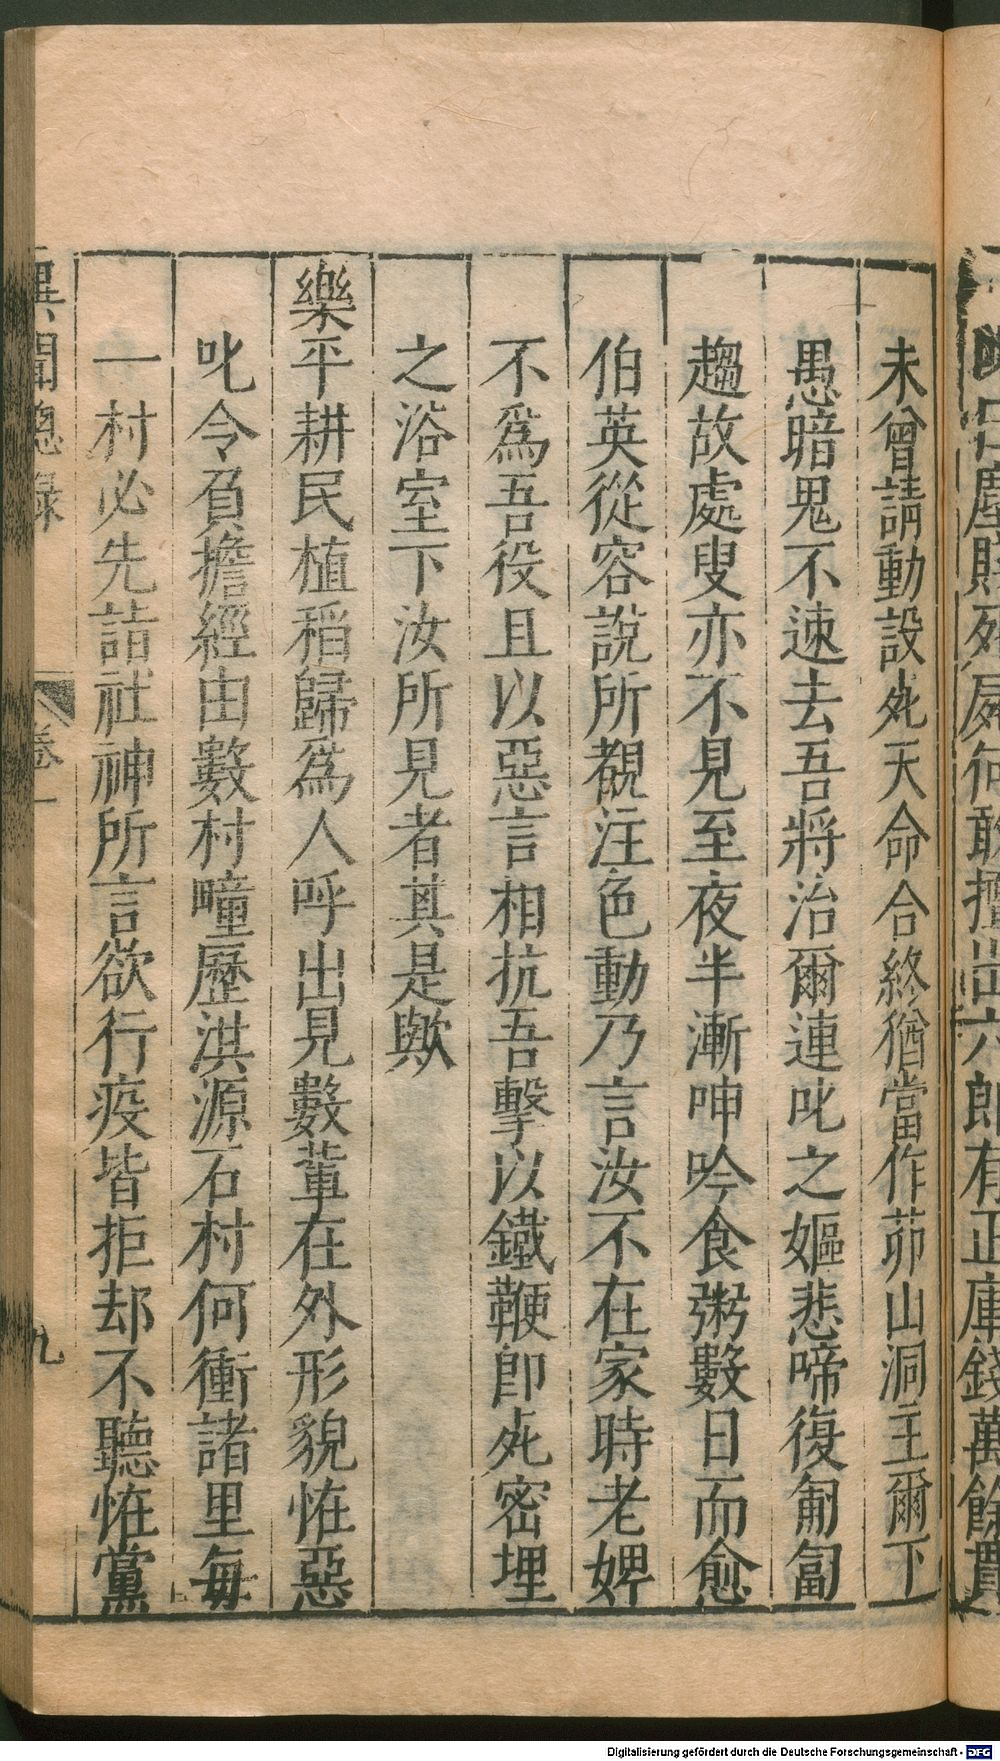 未曾請動設死天命合終猶當作茆山洞主爾下
愚暗鬼不速去吾將治爾連叱之嫗悲啼復匍匐
趨故處叟亦不見至夜半漸呻吟食粥數日而愈
伯英從容說所覩注色動乃言汝不在家時老婢
不爲吾役且以惡言相抗吾擊以鐵鞭卽死密埋
之浴室下汝所見者其是歟
樂平耕民植稻歸爲人呼出見數輩在外形貌恠惡
叱令負擔經由數村疃歷洪源石村何衝諸里每
一村必先詣社神所言欲行疫皆拒却不聽恠黨
異聞總錄
卷一
九
Digitalisierung gefördert durch die Deutsche Forschungsgemeinschaft - DFG